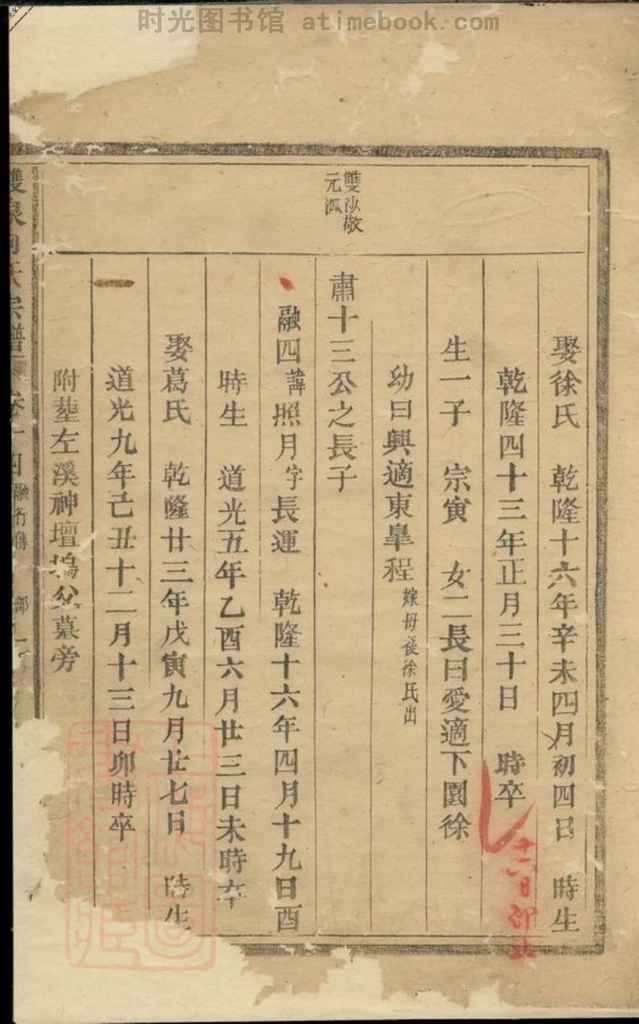 时光图书馆 atimebook.com
雙派敬
元派
娶徐氏 乾隆十六年辛未四月初四日 時生
乾隆四十三年正月三十日 時卒
生一子 宗寅 女二長曰愛適下園徐
幼曰興適東皐程 嫁母後徐氏出
肅十三公之長子
融四諱照月字長運 乾隆十六年四月十九日酉
時生 道光五年乙酉六月廿三日未時卒
娶葛氏 乾隆廿三年戊寅九月廿七日 時生
道光九年己丑十二月十三日卯時卒
附塟左溪神壇塢父墓旁
宗譜